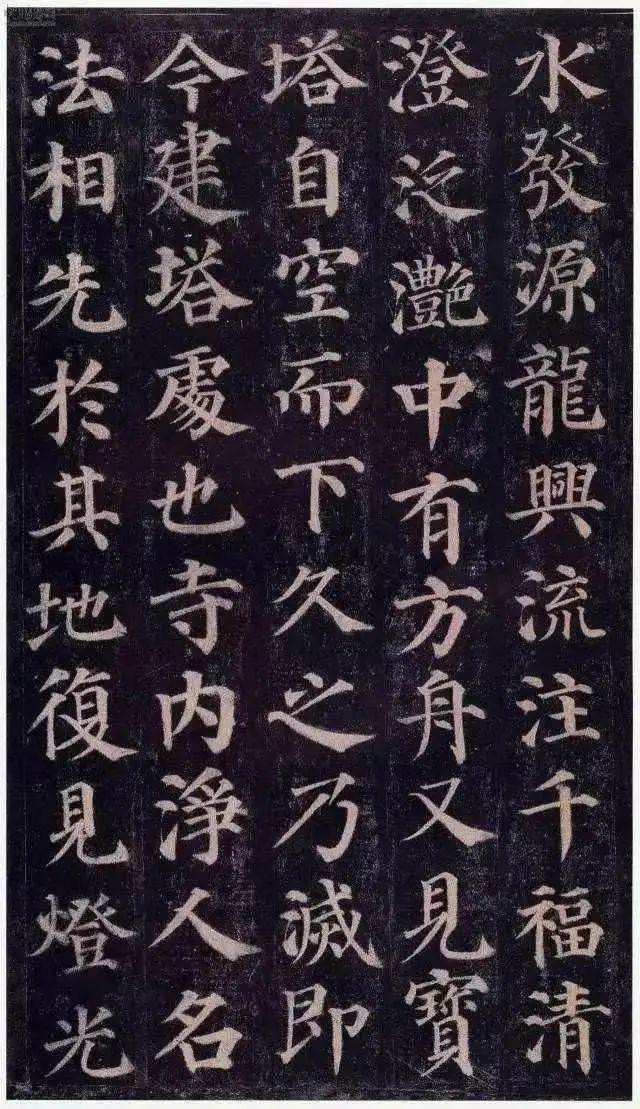 水發源龍興流注千福清
澄泛灩中有方舟又見寶
塔自空而下久之乃滅即
今建塔處也寺内淨人名
法相先於其地復見燈光